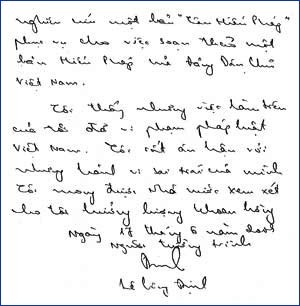 nghiên cứu một bản "Tân Hiến Pháp"
phục vụ cho việc soạn thảo một
bản Hiến Pháp mà Đảng Dân Chủ
Việt Nam.
Tôi thấy những việc làm trên
của tôi đã vi phạm pháp luật
Việt Nam. Tôi rất ân hận với
những hành vi sai trái của mình
Tôi mong được nhà nước xem xét
cho tôi hưởng lượng khoan hồng
Ngày 18 tháng 6 năm 2009
Người tường trình
Lê Công Định